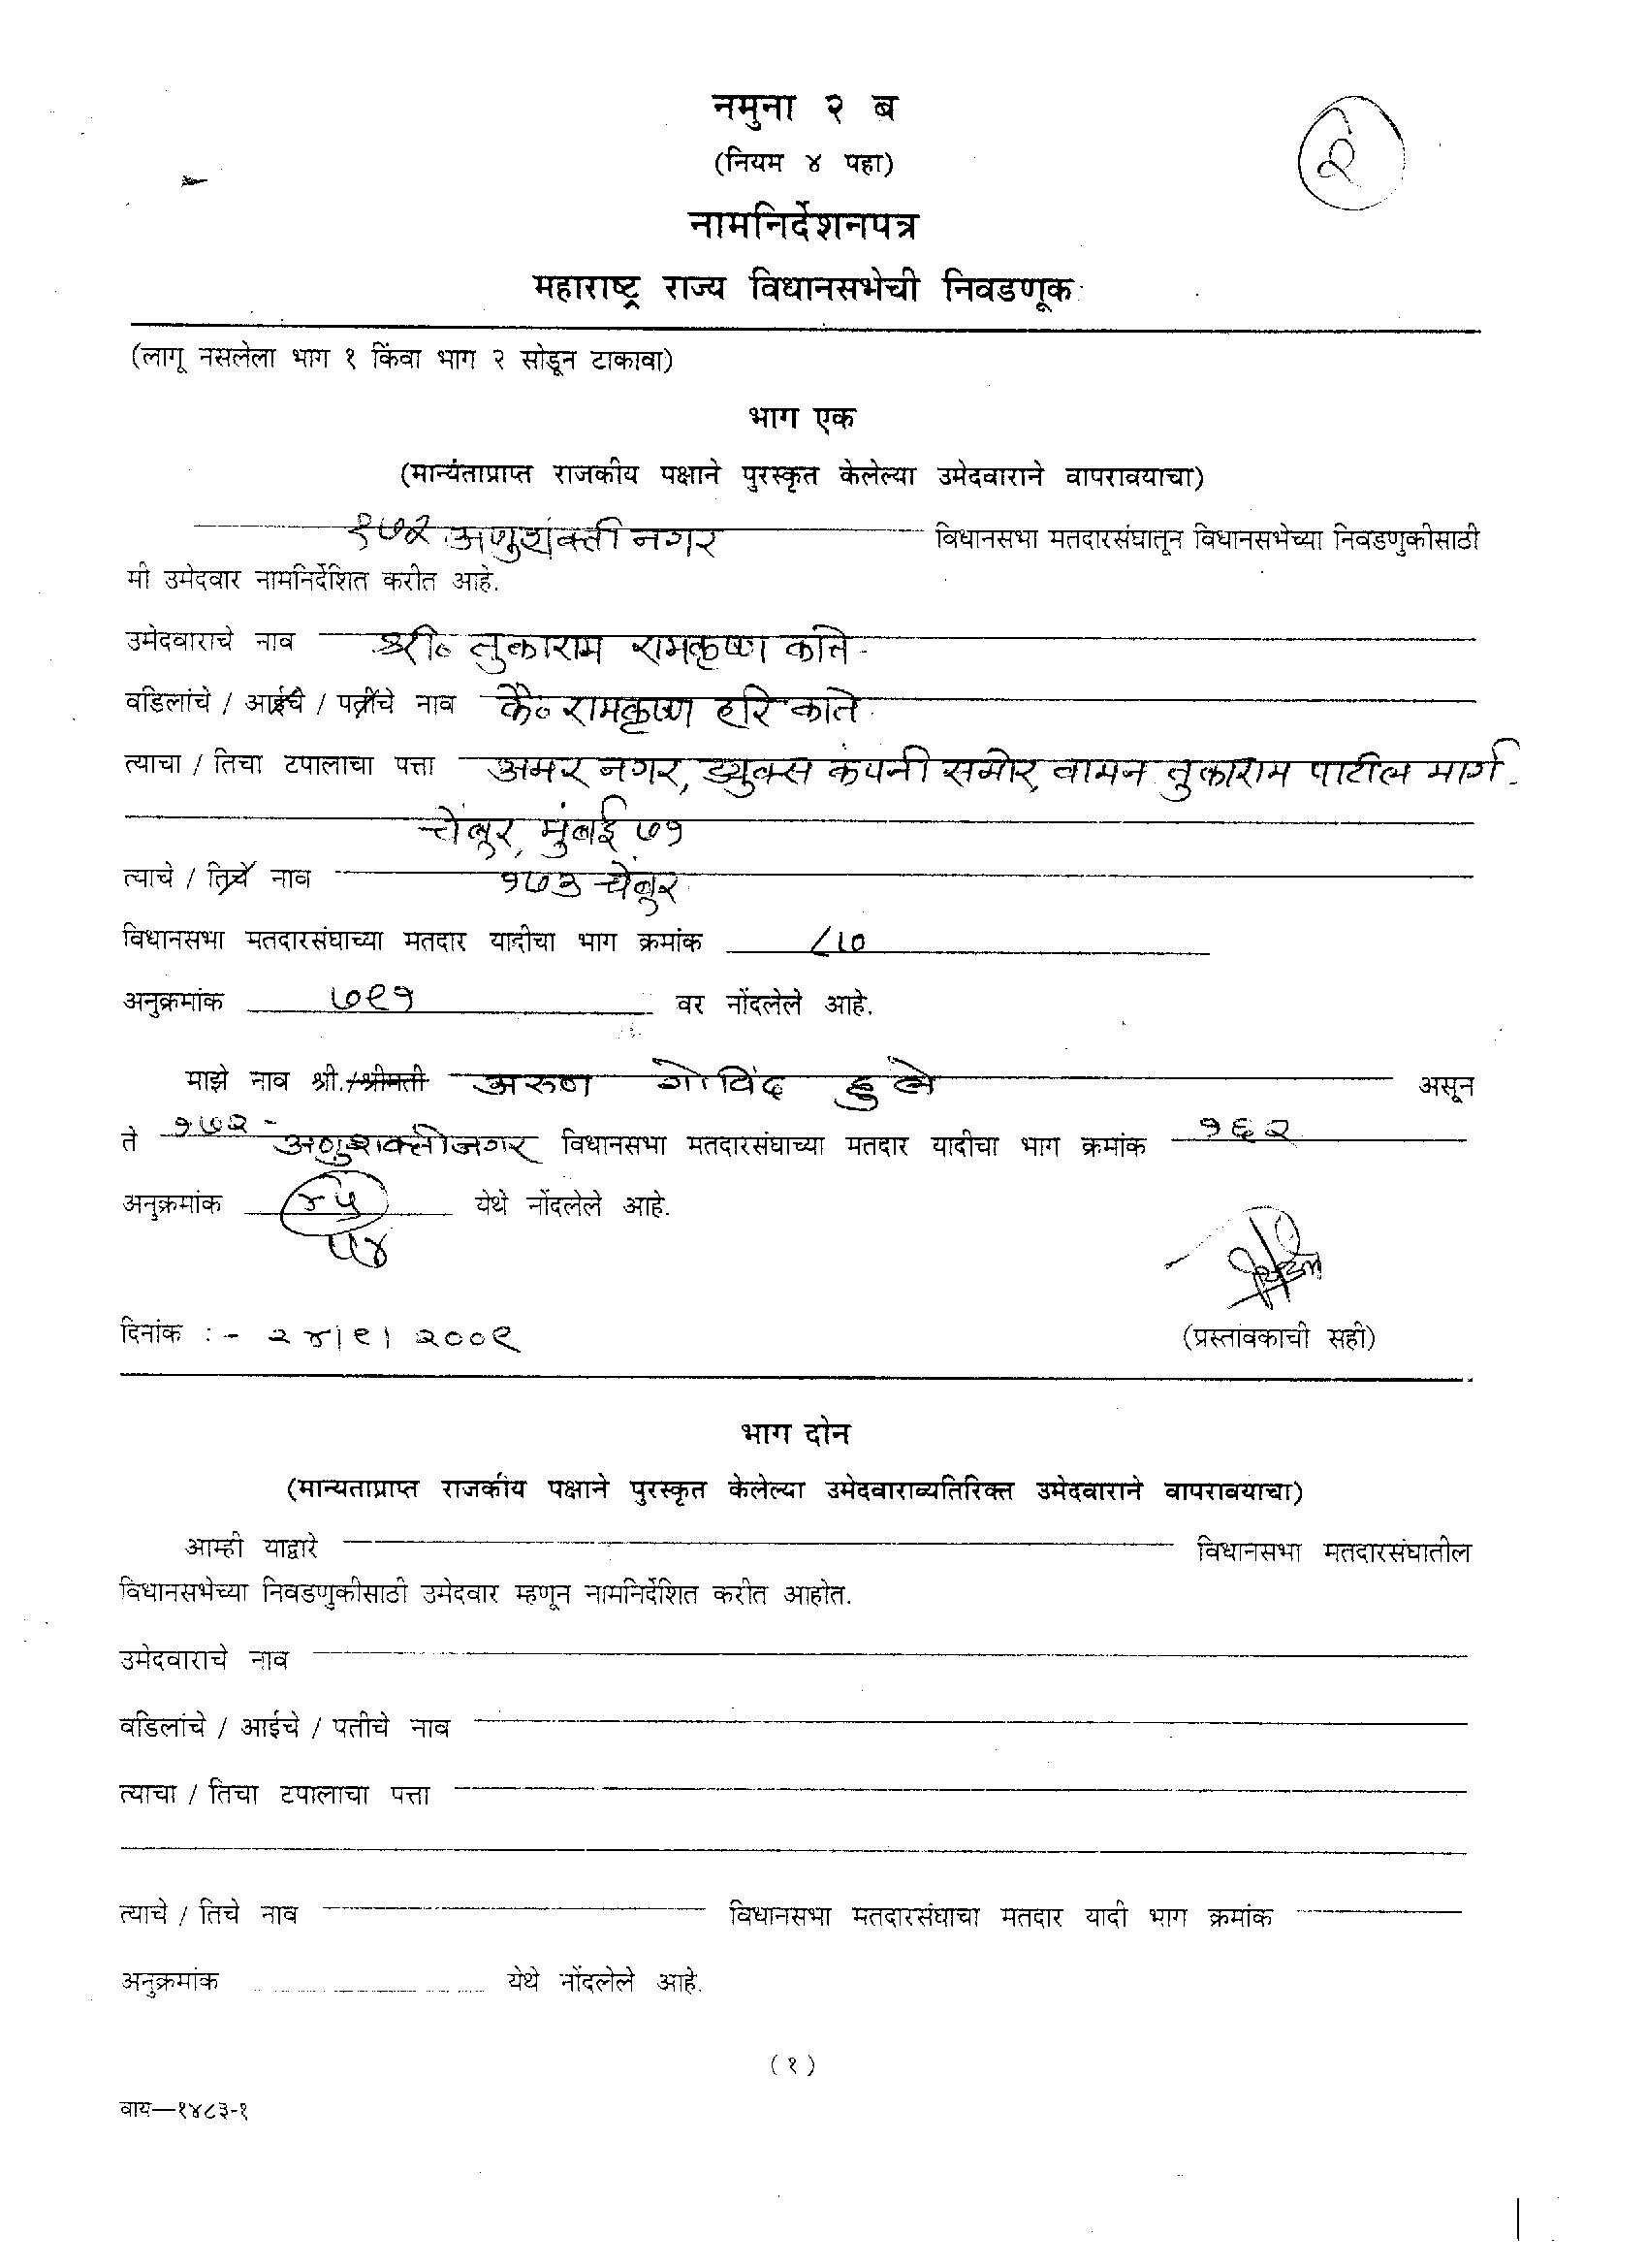 नमुना २ ब
२
(नियम ४ पहा)
नामनिर्देशनपत्र
महाराष्ट्र राज्य विधानसभेची निवडणूक
(लागू नसलेला भाग १ किंवा भाग २ सोडून टाकावा)
भाग एक
(मान्यताप्राप्त राजकीय पक्षाने पुरस्कृत केलेल्या उमेदवाराने वापरावयाचा)
१७२ अणुशक्ती नगर विधानसभा मतदारसंघातून विधानसभेच्या निवडणुकीसाठी
मी उमेदवार नामनिर्देशित करीत आहे.
उमेदवाराचे नाव श्री० तुकाराम रामकृष्ण काते
वडिलांचे / आईचे / पतीचे नाव कै० रामकृष्ण हरि काते
त्याचा / तिचा टपालाचा पत्ता अमर नगर, ड्युक्स कंपनी समोर, वामन तुकाराम पाटील मार्ग
चेंबूर, मुंबई ७१
त्याचे / तिचे नाव १७३ चेंबूर
विधानसभा मतदारसंघाच्या मतदार यादीचा भाग क्रमांक
अनुक्रमांक ७९१ वर नोंदलेले आहे.
माझे नाव श्री./श्रीमती अरुण गोविंद हुले असून
ते १७२ - अणुशक्तीनगर विधानसभा मतदारसंघाच्या मतदार यादीचा भाग क्रमांक १६२
अनुक्रमांक ४५ येथे नोंदलेले आहे.
५४
दिनांक :- २४/९/२००९ (प्रस्तावकाची सही)
भाग दोन
(मान्यताप्राप्त राजकीय पक्षाने पुरस्कृत केलेल्या उमेदवाराव्यतिरिक्त उमेदवाराने वापरावयाचा)
आम्ही याद्वारे विधानसभा मतदारसंघातील
विधानसभेच्या निवडणुकीसाठी उमेदवार म्हणून नामनिर्देशित करीत आहोत.
उमेदवाराचे नाव
वडिलांचे / आईचे / पतीचे नाव
त्याचा / तिचा टपालाचा पत्ता
त्याचे / तिचे नाव विधानसभा मतदारसंघाचा मतदार यादी भाग क्रमांक
अनुक्रमांक येथे नोंदलेले आहे.
(१)
वाय—१४८३-१